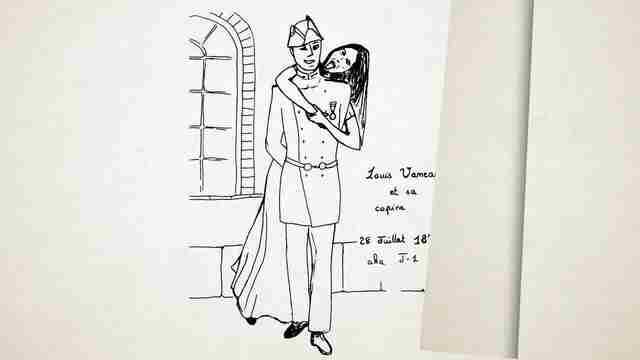 Louis Vanea
et sa
copine
28 Juillet 18
aka J-1